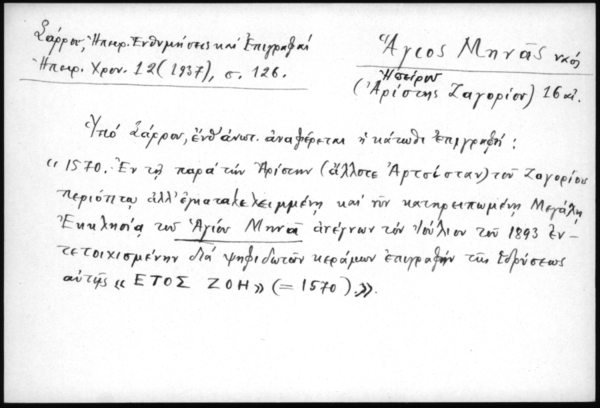 Σάρρου, Ἠπειρ. Ἐνθυμήσεις καὶ Ἐπιγραφαί
Ἠπειρ. Χρον. 12 (1937), σ. 126.
Ἅγιος Μηνᾶς ναός
Ἠπείρου
(Ἀρίστης Ζαγορίου) 16 αἰ.
Ὑπὸ Σάρρου, ἔνθ᾽ἀνωτ. ἀναφέρεται ἡ κάτωθι ἐπιγραφή:
« 1570. Ἐν τῇ παρὰ τὴν Ἀρίστην (ἄλλοτε Ἀρτσίσταν) τοῦ Ζαγορίου
περιόπτῳ ἀλλ᾽ ἐγκαταλελειμμένῃ καὶ νῦν κατηρειπωμένῃ Μεγάλῃ
Ἐκκλησίᾳ τοῦ Ἁγίου Μηνᾶ ἀνέγνων τὸν Ἰούλιον τοῦ 1893 ἐν-
τετοιχισμένην διὰ ψηφιδωτῶν κεράμων ἐπιγραφὴν τῆς ἱδρύσεως
αὐτῆς « ΕΤΟΣ ΖΟΗ» (= 1570).».